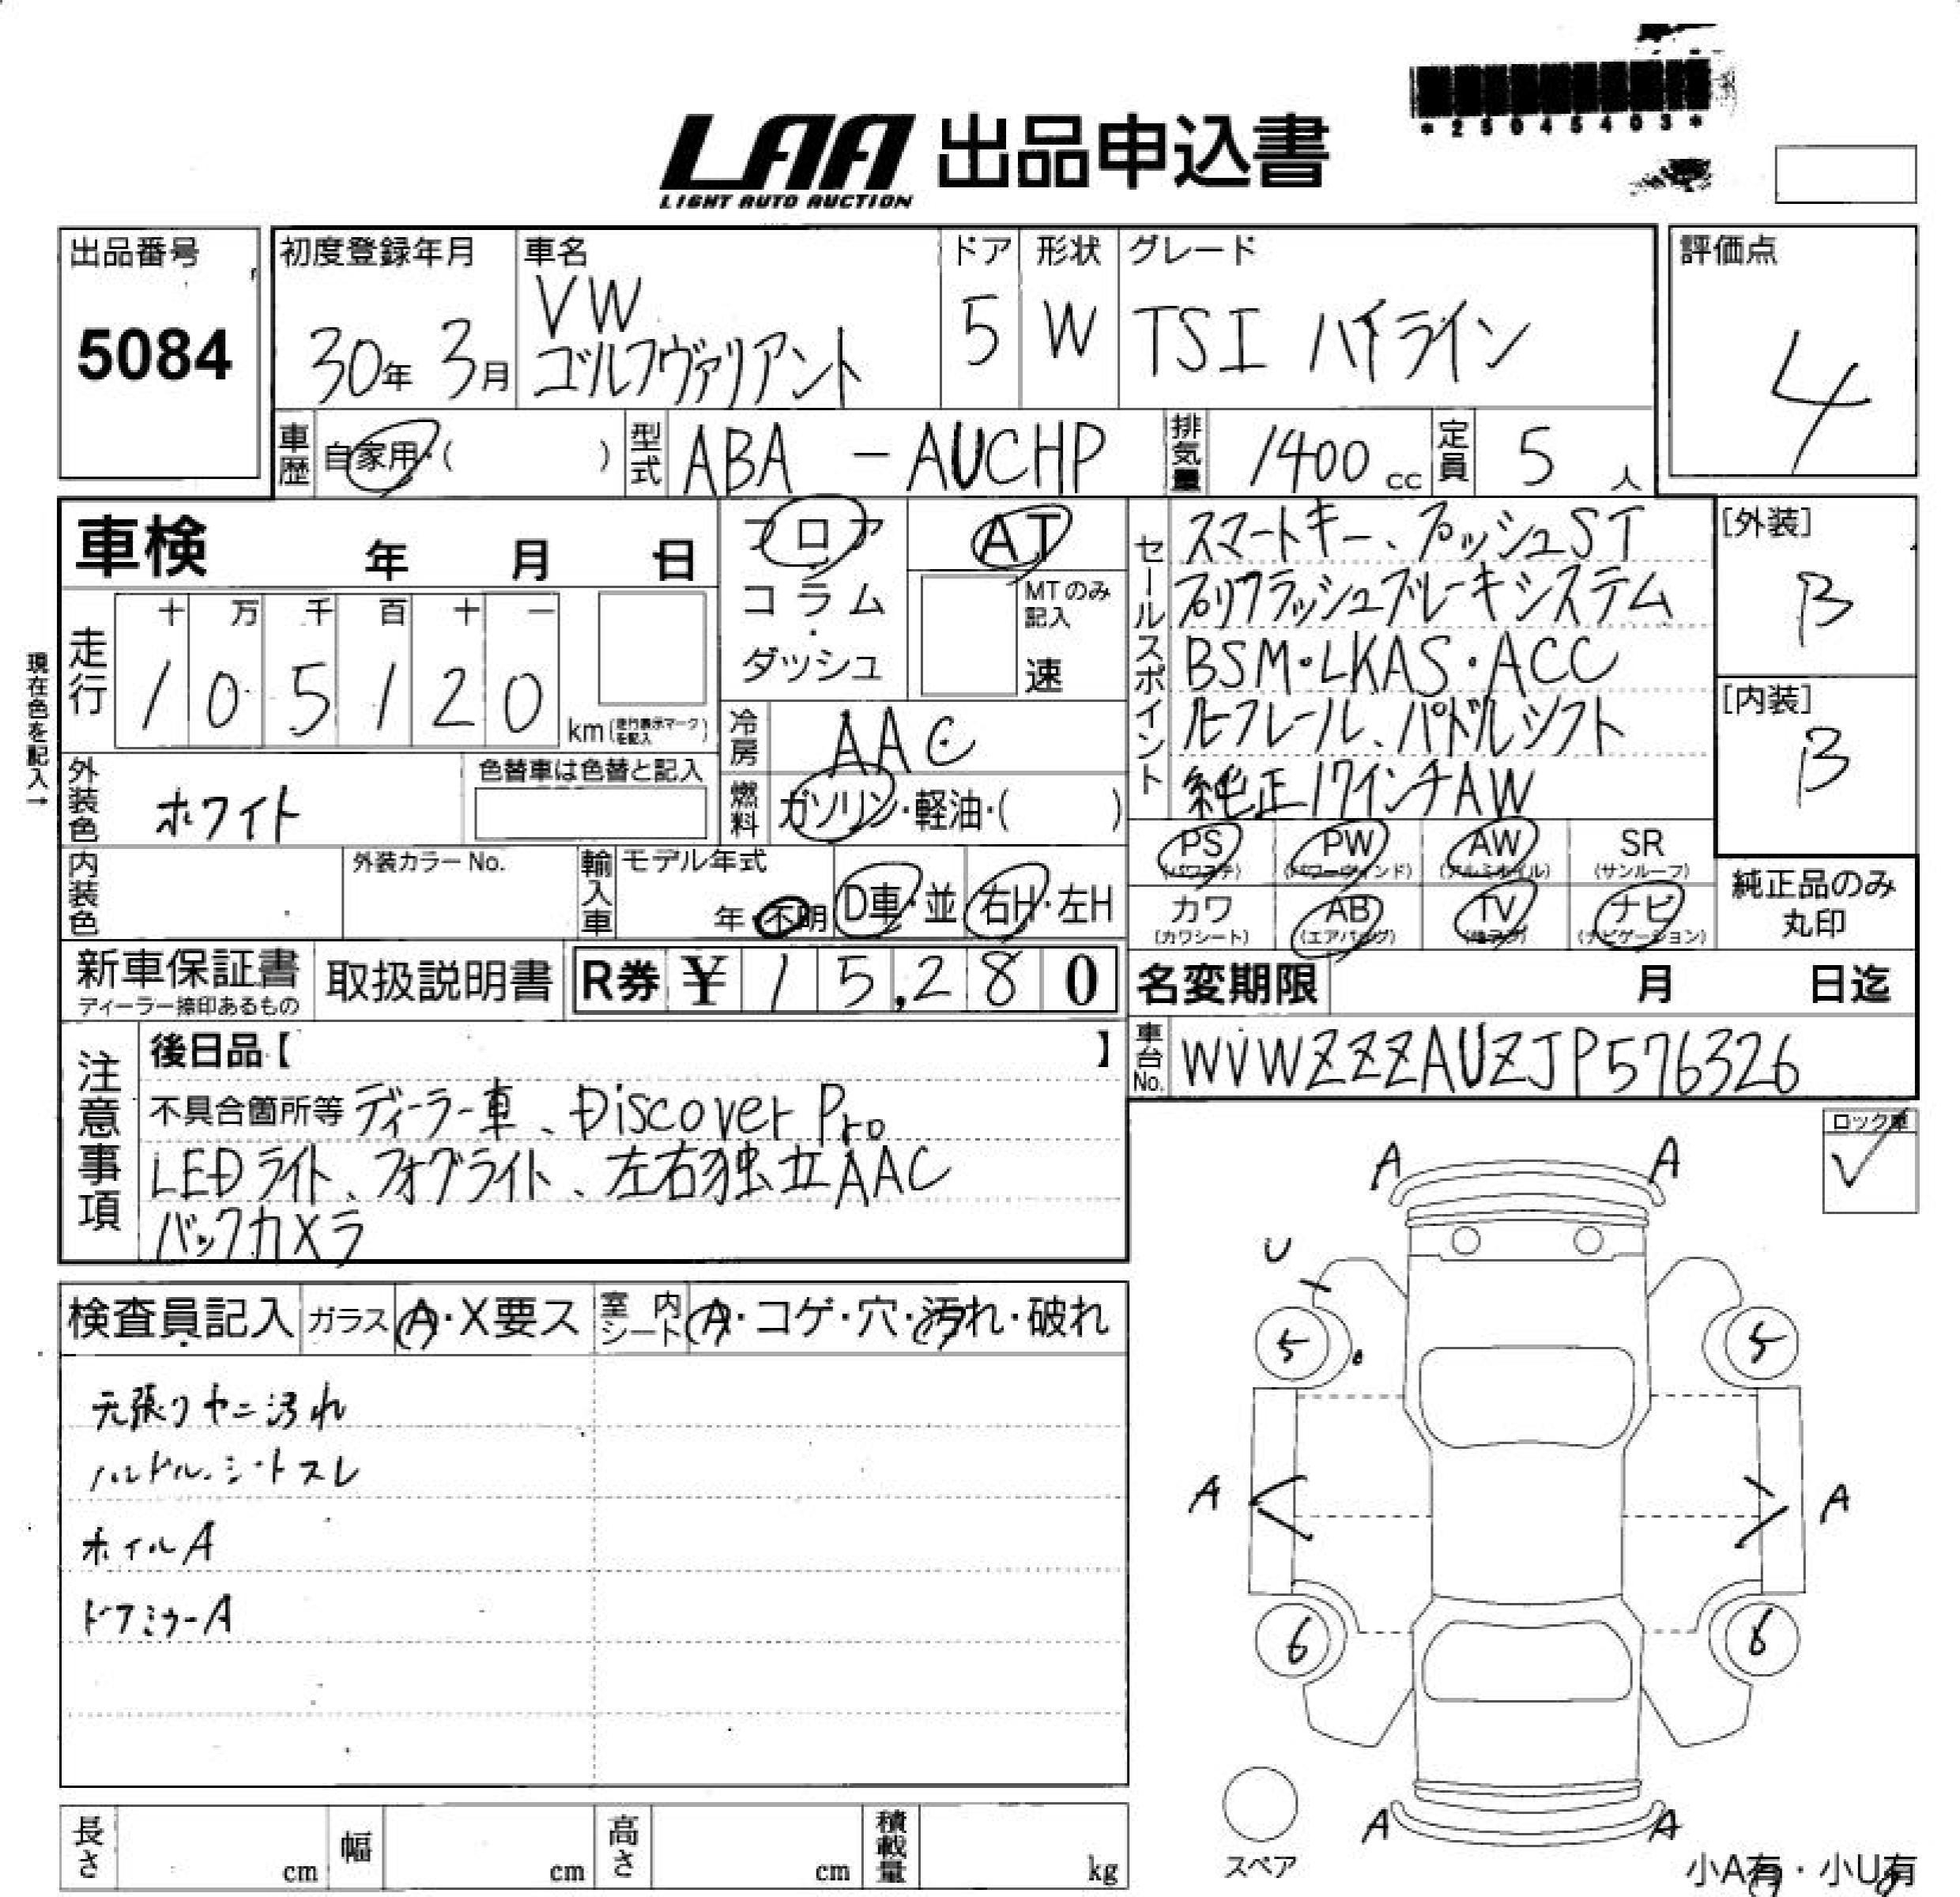 *25045403*
LAA 出品申込書
LIGHT AUTO AUCTION
出品番号
5084
初度登録年月
30年 3月
車名
VW
ゴルフヴァリアント
ドア
5
形状
W
グレード
TSI ハイライン
評価点
4
車歴 自家用・( )
型式 ABA - AUCHP
排気量 1400 cc
定員 5 人
車検 年 月 日
フロア
コラム
・
ダッシュ
AT
MTのみ
記入
速
現在色を記入→
走行
十 万 千 百 十 一
1 0 5 1 2 0 km(走行表示マークを記入)
冷房 AAC
燃料 ガソリン・軽油・( )
外装色 ホワイト
色替車は色替と記入
内装色
外装カラーNo.
輸入車
モデル年式
年・不明
D車・並
右H・左H
セールスポイント
スマートキー、プッシュST
プリクラッシュブレーキシステム
BSM・LKAS・ACC
ルーフレール、パドルシフト
純正17インチAW
[外装]
B
[内装]
B
PS
(パワステ)
PW
(パワーウインド)
AW
(アルミホイル)
SR
(サンルーフ)
カワ
(カワシート)
AB
(エアバッグ)
TV
ナビ
(ナビゲーション)
純正品のみ
丸印
新車保証書
ディーラー捺印あるもの
取扱説明書
R券 ¥ 15,280
名変期限 月 日迄
車台No. WVWZZZAUZJP576326
注意事項
後日品【 】
不具合箇所等 ディーラー車、Discover Pro
LEDライト、フォグライト、左右独立AAC
バックカメラ
ロック車
✓
検査員記入
ガラス A・X要ス
室内シート A・コゲ・穴・汚れ・破れ
天張りヤニ汚れ
ハンドル、シートスレ
ホイルA
ドアミラーA
A A
U
5 5
A A
6 6
A A
スペア
小A有・小U有
長さ cm
幅 cm
高さ cm
積載量 kg